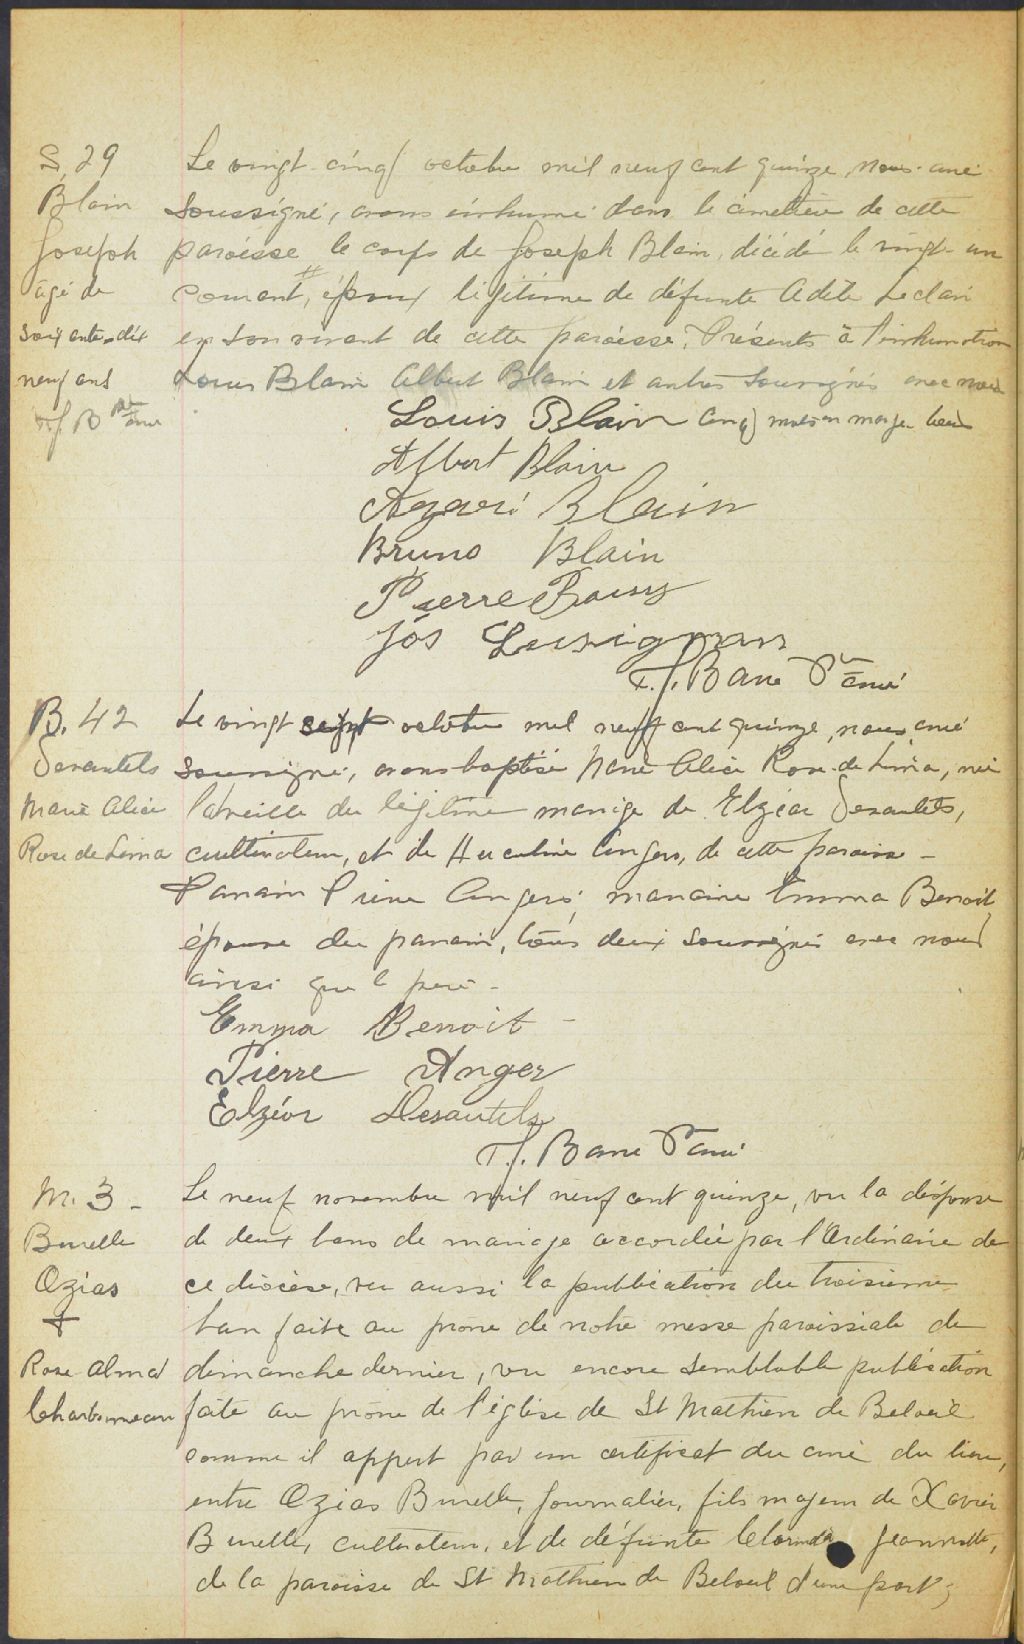 S. 29
Blain
Joseph
âgé de
soixante-dix
neuf ans
Le vingt cinq octobre mil neuf cent quinze, nous curé
soussigné, avons inhumé dans le cimetière de cette
paroisse le corps de Joseph Blain, décédé le vingt un
courant, # époux légitime de défunte Adèle Leclair
en son vivant de cette paroisse. Présents à l'inhumation
Louis Blain Albert Blain et autres soussignés avec nous
Louis Blain Cinq mots en marge bons
Albert Blain
Azarie Blain
Bruno Blain
Pierre
Jos Lusignan
F.J. Ptre curé
B. 42
Desautels
Marie Alice
Rose de Lima
Le vingt sept octobre mil neuf cent quinze, nous curé
soussigné, avons baptisé Marie Alice Rose de Lima, née
la veille du légitime mariage de Elzéar Desautels,
cultivateur, et de Angers, de cette paroisse -
Parrain Pierre Angers, marraine Emma Benoit,
épouse du parrain, tous deux soussignés avec nous
ainsi que le père -
Emma Benoit -
Pierre Anger
Elzéar Desautels
F.J. Ptre curé
M. 3 -
Burelle
Ozias
+
Rose Alma
Charbonneau
Le neuf novembre mil neuf cent quinze, vu la dispense
de deux bans de mariage accordée par l'Ordinaire de
ce diocèse, vu aussi la publication du troisième
ban faite au prone de notre messe paroissiale de
dimanche dernier, vu encore semblable publication
faite au prône de l'église de St Mathieu de Beloeil
comme il appert par un certificat du curé du lieu,
entre Ozias Burelle, journalier, fils majeur de Xavier
Burelle, cultivateur, et de défunte Clorinda Jeannotte,
de la paroisse de St Mathieu de Beloeil d'une part;